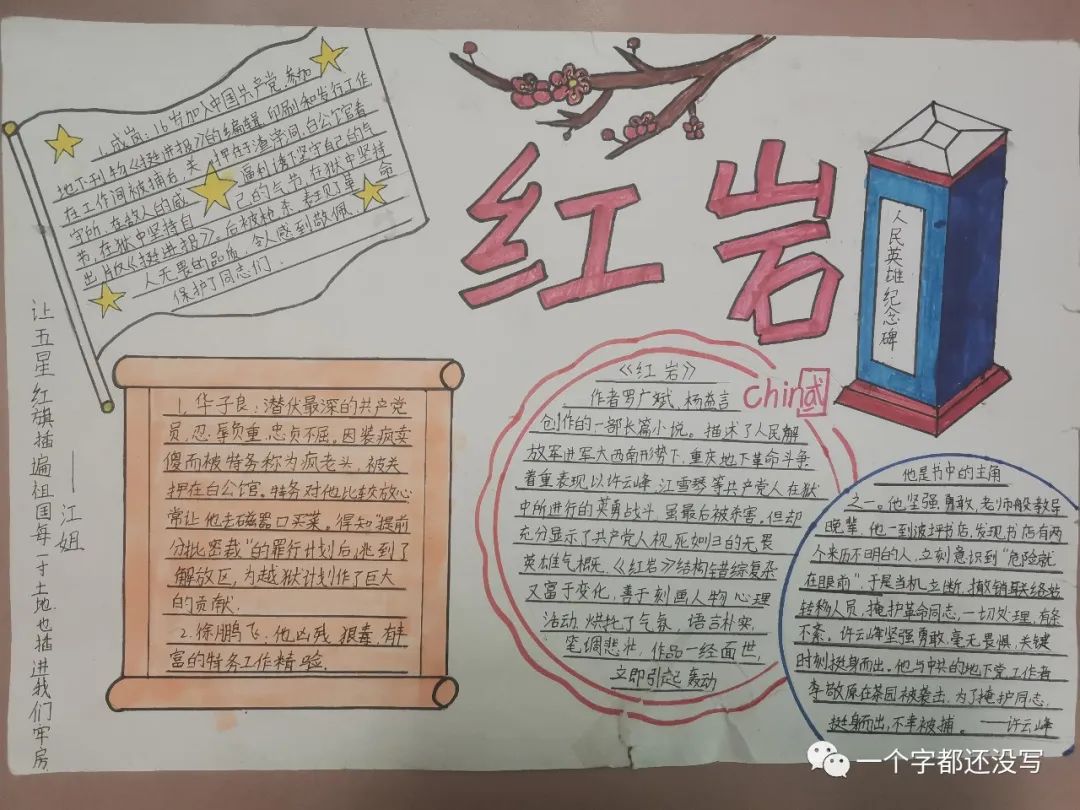 红岩
1、成岗：16岁加入中国共产党，参加
地下刊物《挺进报》的编辑、印刷和发行工作
在工作间被捕后，关押在于渣滓洞、白公馆看
守所，在敌人的威 福利诱下坚守自己的气
节，在狱中坚持自 己的气节，在狱中坚持
出版《挺进报》。后被枪杀，表现了革命
人无畏的品质，令人感到敬佩，
保护了同志们．
让五星红旗插遍祖国每一寸土地也插进我们牢房
——江姐
1、华子良：潜伏最深的共产党
员，忍辱负重，忠贞不屈。因装疯卖
傻而被特务称为疯老头，被关
押在白公馆。特务对他比较放心
常让他去磁器口买菜。得知“提前
分批密裁”的罪行计划后，逃到了
解放区，为越狱计划作了巨大
的贡献．
2．徐鹏飞：他凶残、狠毒，有丰
富的特务工作精验．
《红岩》
作者罗广斌、杨益言
创作的一部长篇小说。描述了人民解
放军进军大西南形势下，重庆地下革命斗争
着重表现以许云峰、江雪琴等共产党人在狱
中所进行的英勇战斗，虽最后被杀害，但却
充分显示了共产党人视死如归的无畏
英雄气概。《红岩》结构错综复杂
又富于变化，善于刻画人物心理
活动、烘托了气氛、语言朴实，
笔调悲壮，作品一经面世，
立即引起轰动
China式
人民英雄纪念碑
他是书中的主角
之一。他坚强勇敢，老师般教导
晚辈，他一到坡坪书店，发现书店有两
个来历不明白的人，立刻意识到“危险就
在眼前”于是当机立断，撤销联络站
转移人员，掩护革命同志，一切处理，有条
不紊。许云峰坚强勇敢，毫无畏惧，关键
时刻挺身而出。他与中共的地下党工作者
李敬原在茶园被袭击，为了掩护同志，
挺身而出，不幸被捕。——许云峰
一个字都还没写